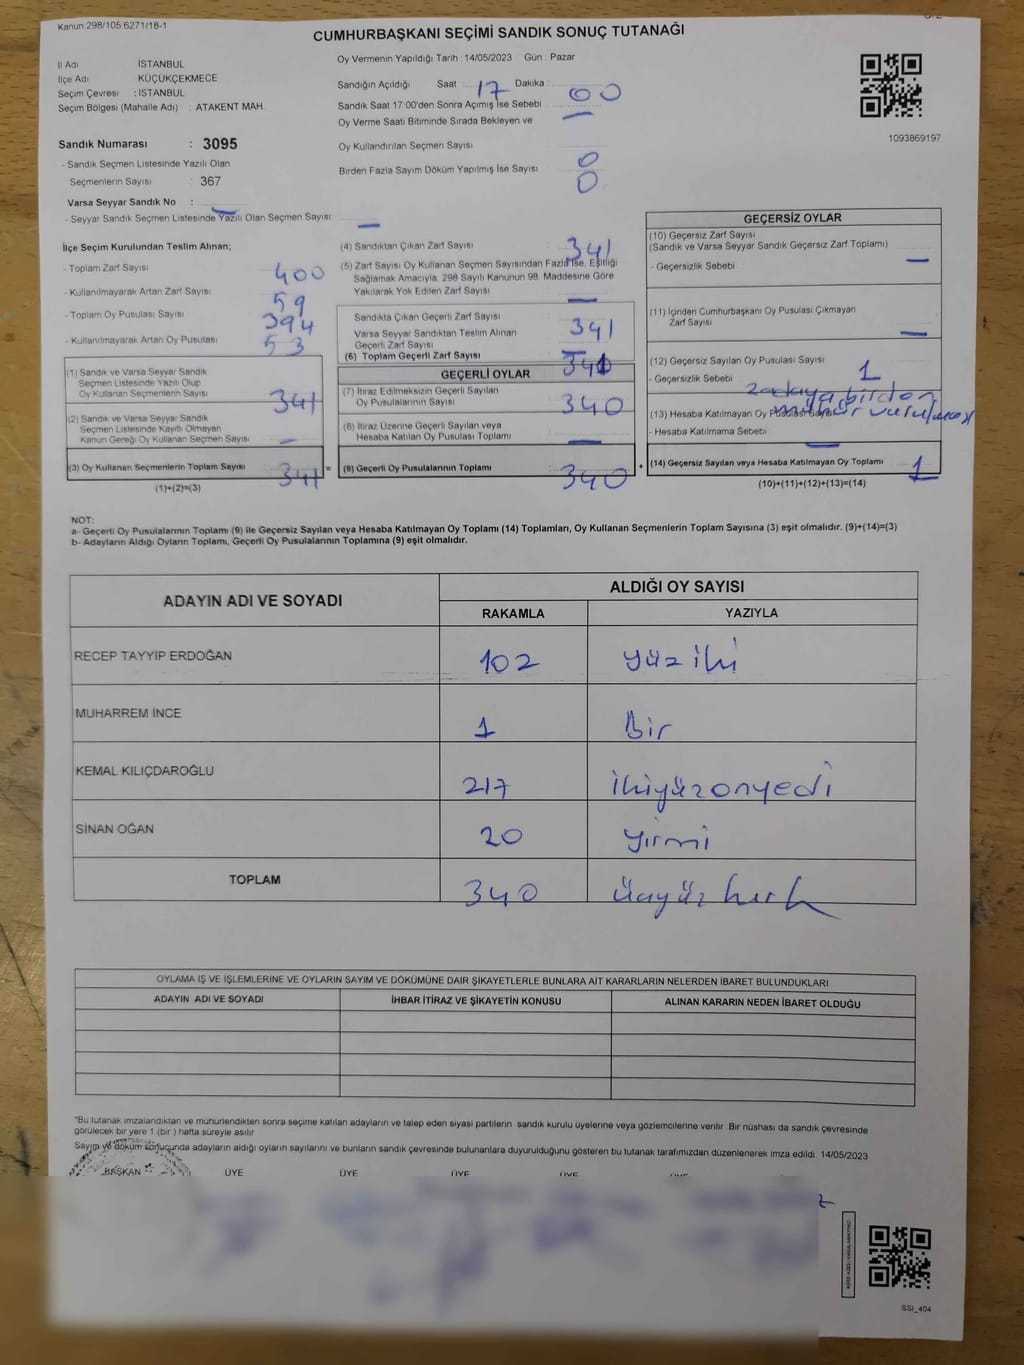 Kanun:298/105.6271/18-1
CUMHURBAŞKANI SEÇİMİ SANDIK SONUÇ TUTANAĞI
Oy Vermenin Yapıldığı Tarih : 14/05/2023 Gün : Pazar
İl Adı : İSTANBUL
İlçe Adı : KÜÇÜKÇEKMECE
Seçim Çevresi : İSTANBUL
Seçim Bölgesi (Mahalle Adı) : ATAKENT MAH.
Sandık Numarası : 3095
- Sandık Seçmen Listesinde Yazılı Olan
Seçmenlerin Sayısı : 367
Varsa Seyyar Sandık No : —
- Seyyar Sandık Seçmen Listesinde Yazılı Olan Seçmen Sayısı : —
Sandığın Açıldığı Saat : 17 Dakika : 00
Sandık Saat 17:00'den Sonra Açımış İse Sebebi : —
Oy Verme Saati Bitiminde Sırada Bekleyen ve
Oy Kullandırılan Seçmen Sayısı : 0
Birden Fazla Sayım Döküm Yapılmış İse Sayısı : 0
1093869197
İlçe Seçim Kurulundan Teslim Alınan;
- Toplam Zarf Sayısı : 400
- Kullanılmayarak Artan Zarf Sayısı : 59
- Toplam Oy Pusulası Sayısı : 394
- Kullanılmayarak Artan Oy Pusulası : 53
(1) Sandık ve Varsa Seyyar Sandık
Seçmen Listesinde Yazılı Olup
Oy Kullanan Seçmenlerin Sayısı : 341
(2) Sandık ve Varsa Seyyar Sandık
Seçmen Listesinde Kayıtlı Olmayan
Kanun Gereği Oy Kullanan Seçmen Sayısı : —
(3) Oy Kullanan Seçmenlerin Toplam Sayısı : 341 =
(1)+(2)=(3)
(4) Sandıktan Çıkan Zarf Sayısı : 341
(5) Zarf Sayısı Oy Kullanan Seçmen Sayısından Fazla İse, Eşitliği
Sağlamak Amacıyla, 298 Sayılı Kanunun 98. Maddesine Göre
Yakılarak Yok Edilen Zarf Sayısı : —
Sandıkta Çıkan Geçerli Zarf Sayısı : 341
Varsa Seyyar Sandıktan Teslim Alınan
Geçerli Zarf Sayısı : —
(6) Toplam Geçerli Zarf Sayısı : 341
GEÇERLİ OYLAR
(7) İtiraz Edilmeksizin Geçerli Sayılan
Oy Pusulalarının Sayısı : 340
(8) İtiraz Üzerine Geçerli Sayılan veya
Hesaba Katılan Oy Pusulası Toplamı : —
(9) Geçerli Oy Pusulalarının Toplamı : 340 +
GEÇERSİZ OYLAR
(10) Geçersiz Zarf Sayısı
(Sandık ve Varsa Seyyar Sandık Geçersiz Zarf Toplamı) : —
- Geçersizlik Sebebi
(11) İçinden Cumhurbaşkanı Oy Pusulası Çıkmayan
Zarf Sayısı : —
(12) Geçersiz Sayılan Oy Pusulası Sayısı : 1
- Geçersizlik Sebebi : 2 adaya birden
mühür vurulması
(13) Hesaba Katılmayan Oy Pusulası Sayısı : —
- Hesaba Katılmama Sebebi
(14) Geçersiz Sayılan veya Hesaba Katılmayan Oy Toplamı : 1
(10)+(11)+(12)+(13)=(14)
NOT:
a- Geçerli Oy Pusulalarının Toplamı (9) ile Geçersiz Sayılan veya Hesaba Katılmayan Oy Toplamı (14) Toplamları, Oy Kullanan Seçmenlerin Toplam Sayısına (3) eşit olmalıdır. (9)+(14)=(3)
b- Adayların Aldığı Oyların Toplamı, Geçerli Oy Pusulalarının Toplamına (9) eşit olmalıdır.
ADAYIN ADI VE SOYADI ALDIĞI OY SAYISI
RAKAMLA YAZIYLA
RECEP TAYYİP ERDOĞAN 102 yüz iki
MUHARREM İNCE 1 Bir
KEMAL KILIÇDAROĞLU 217 ikiyüzonyedi
SİNAN OĞAN 20 yirmi
TOPLAM 340 üçyüz kırk
OYLAMA İŞ VE İŞLEMLERİNE VE OYLARIN SAYIM VE DÖKÜMÜNE DAİR ŞİKAYETLERLE BUNLARA AİT KARARLARIN NELERDEN İBARET BULUNDUKLARI
ADAYIN ADI VE SOYADI İHBAR İTİRAZ VE ŞİKAYETİN KONUSU ALINAN KARARIN NEDEN İBARET OLDUĞU
*Bu tutanak imzalandıktan ve mühürlendikten sonra seçime katılan adayların ve talep eden siyasi partilerin sandık kurulu üyelerine veya gözlemcilerine verilir. Bir nüshası da sandık çevresinde
görülecek bir yere 1 (bir ) hafta süreyle asılır.
Sayım ve döküm sonucunda adayların aldığı oyların sayılarını ve bunların sandık çevresinde bulunanlara duyurulduğunu gösteren bu tutanak tarafımızdan düzenlenerek imza edildi. 14/05/2023
BAŞKAN ÜYE ÜYE ÜYE ÜYE
SSI_404